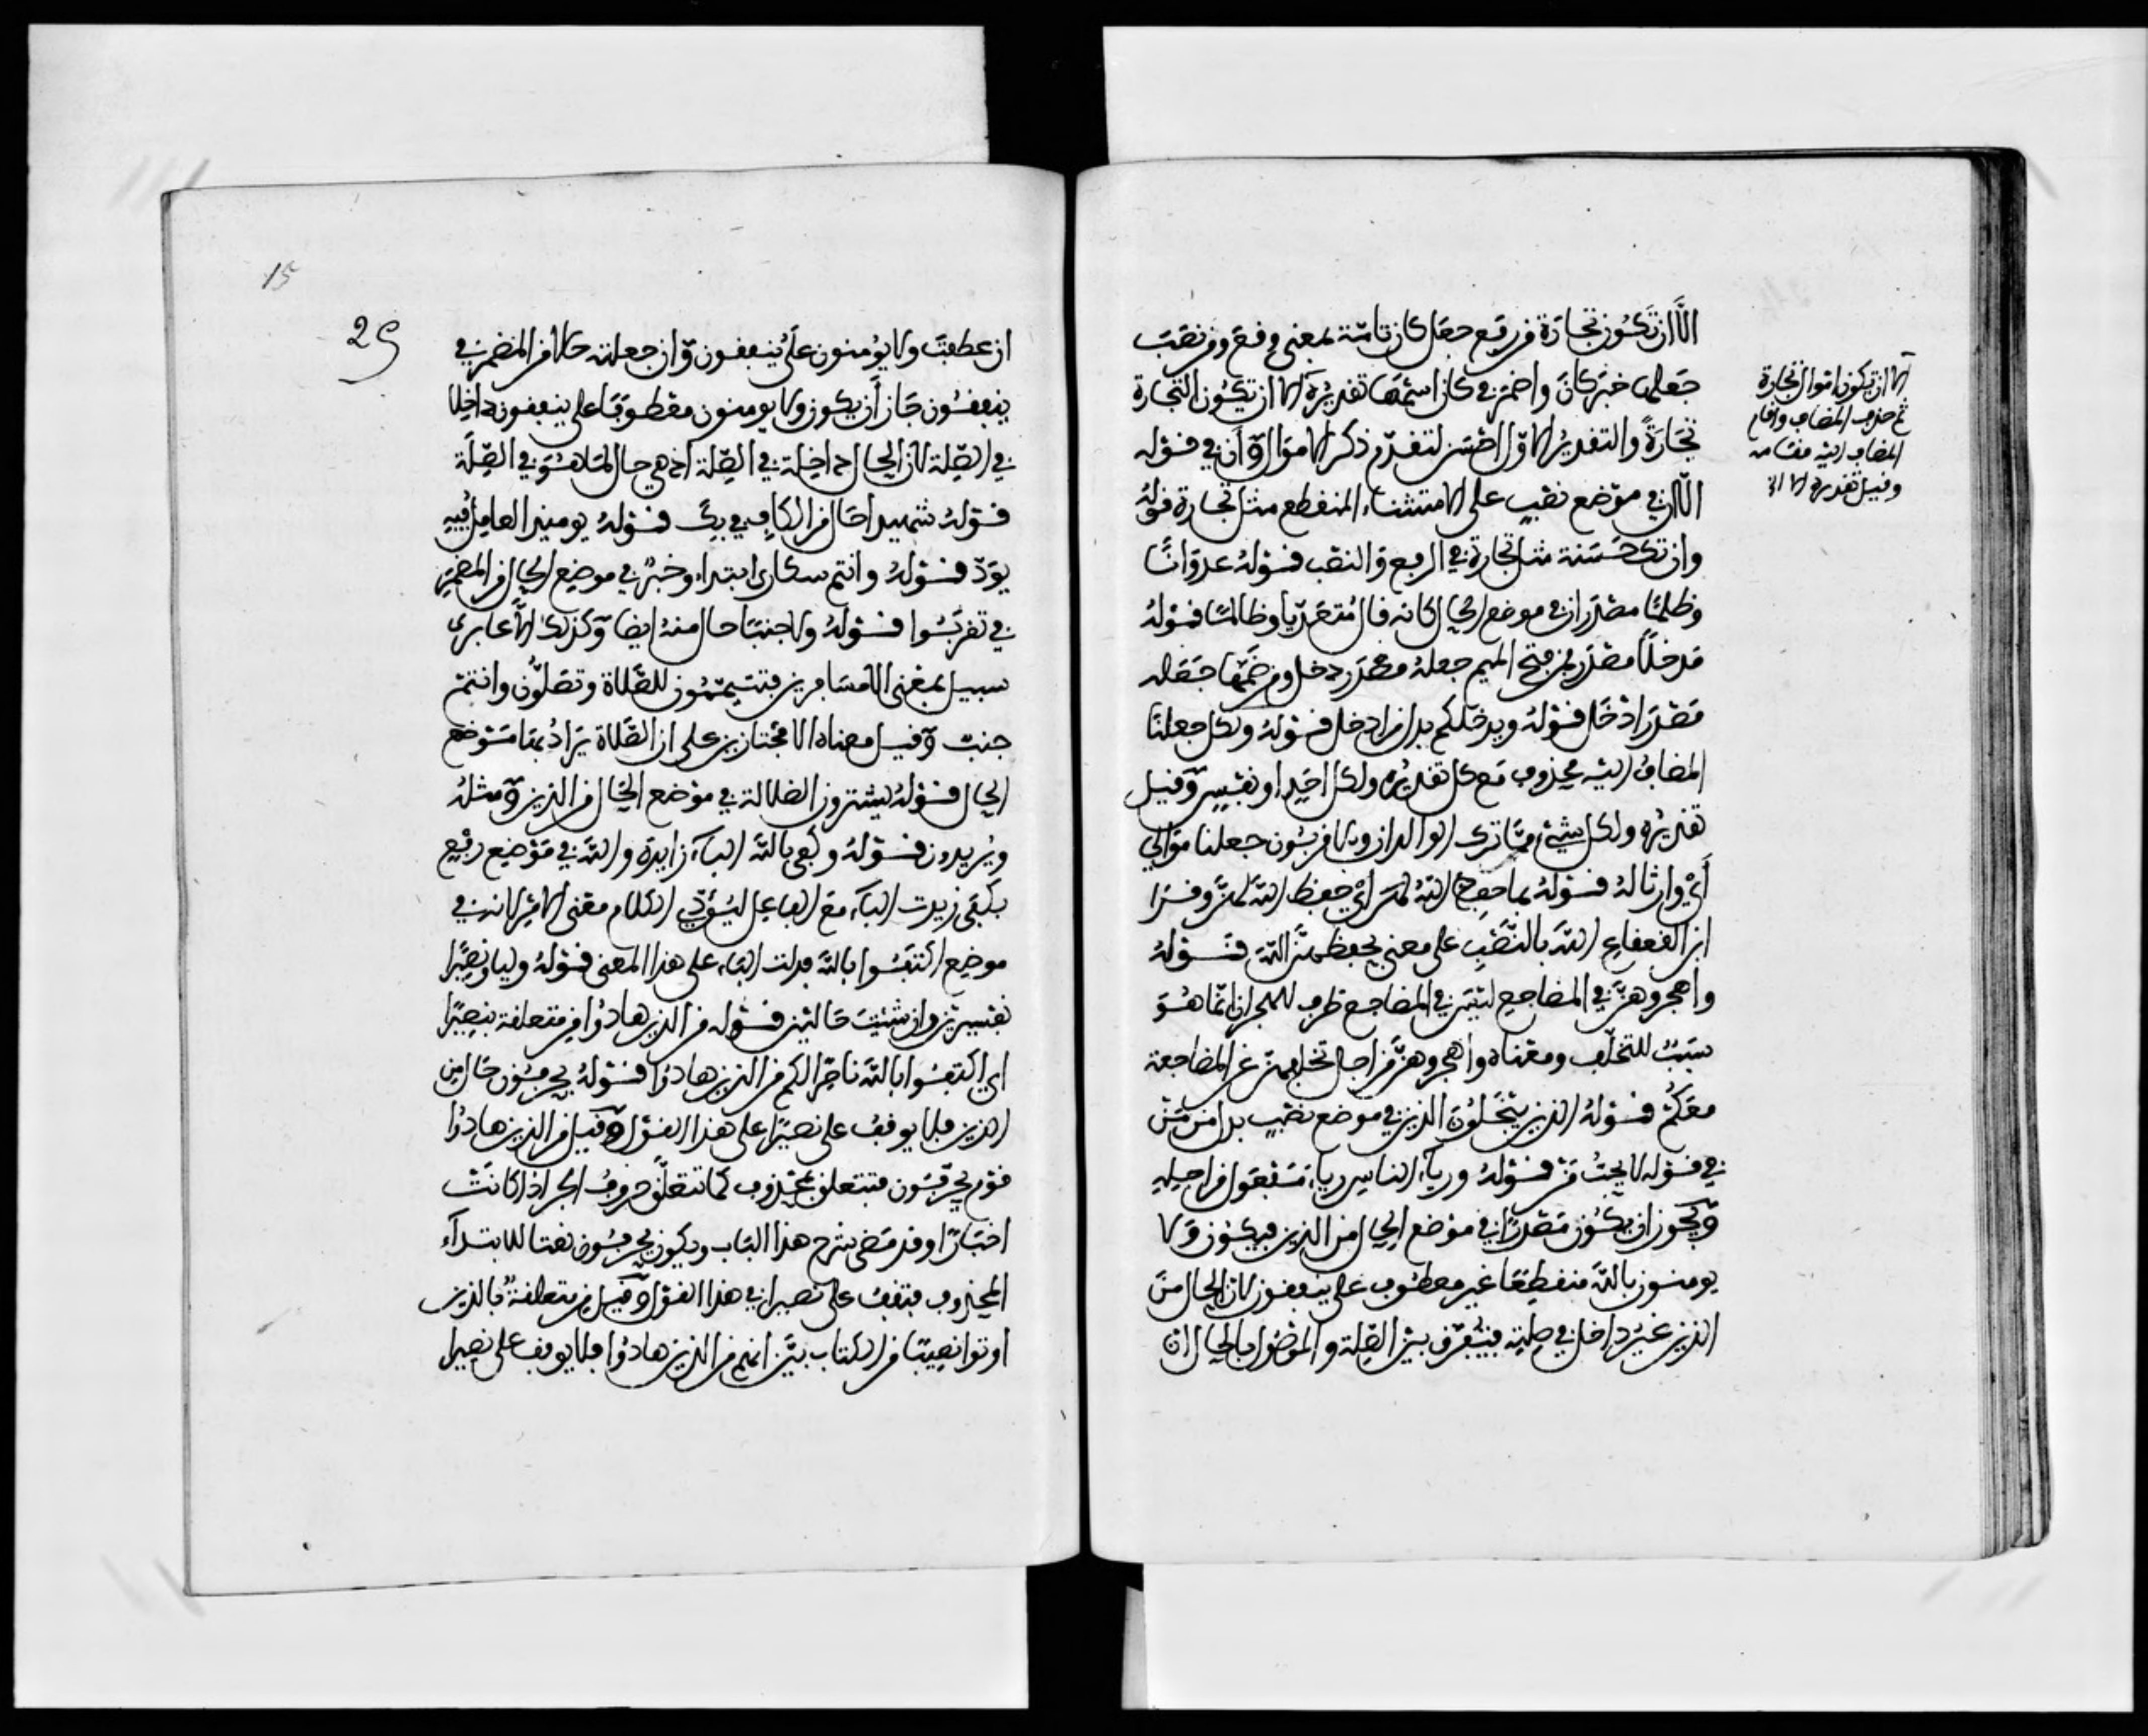 الا ان تكون تجارة من رفع جعل كان تامة بمعنى وقع ومن نصب
جعلها خبر كان واضمر في كان اسمها تقديره الا ان تكون التجارة
تجارة والتقدير الاول احسن لتقدم ذكر الاموال وان في قوله
الا ان في موضع نصب على الاستثناء المنقطع مثل تجارة قوله
وان تك حسنة مثل تجارة في الرفع والنصب قوله عدوانا
وظلما مصدران في موضع الحال كانه قال متعديا وظالما قوله
مدخلا مصدر فمن فتح الميم جعله مصدر دخل ومن ضمها جعله
مصدر ادخل قوله ويدخلكم يدل من ادخل قوله ولكل جعلنا
المضاف اليه محذوف مع كل تقديره ولكل احد او نفس وقيل
تقديره ولكل شيء مما ترك الوالدان والاقربون جعلنا موالي
أي وارثا له قوله بما حفظ الله لهن أي حفظ الله لهن وقرا
ابن القعقاع الله بالنصب على معنى بحفظهن الله قوله
واهجروهن في المضاجع ليس في المضاجع ظرف للهجران انما هو
سبب للتخلف ومعناه واهجروهن من اجل تخلفهن عن المضاجعة
معكم قوله الذين يبخلون الذين في موضع نصب بدل من من
في قوله لا يحب من قوله ورياء الناس رياء مفعول من اجله
ويجوز ان يكون مصدرا في موضع الحال من الذين فيكون ولا
يومنون بالله منقطعا غير معطوف على ينفقون لان الحال من
الذين غير داخل في صلته فيفرق بين الصلة والموصول بالحال ان
الا ان تكون اموال تجارة
ثم حذف المضاف واقام
المضاف اليه مقامه
وقيل تقديره الا ان
15
29
ان عطفت ولا يؤمنون على ينفقون وان جعلته حالا من المضمر في
ينفقون جاز أن يكون ولا يومنون معطوفا على ينفقون داخلا
في الصلة لان الحال داخلة في الصلة اذ هي حال لما هو في الصلة
قوله شهيدا حال من الكاف في بك قوله يومئذ العامل فيه
يود قوله وانتم سكارى ابتداء وخبر في موضع الحال من المضمر
في تقربوا قوله ولا جنبا حال منه ايضا وكذلك الا عابري
سبيل بمعنى الا مسافرين فتتيممون للصلاة وتصلون وانتم
جنب وقيل معناه الا مجتازين على ان الصلاة يراد بها موضع
الحال قوله يشترون الضلالة في موضع الحال من الذين ومثله
ويريدون قوله وكفى بالله الباء زايدة والله في موضع رفع
بكفى زيدت الباء مع الفاعل ليؤدي الكلام معنى الامر لانه في
موضع اكتفوا بالله فدلت الباء على هذا المعنى قوله وليا ونصيرا
تفسيرين وان شئت حالين قوله من الذين هادوا من متعلقة بنصيرا
اي اكتفوا بالله ناصرا لكم من الذين هادوا قوله يحرفون حال من
الذين فلا يوقف على نصيرا على هذا القول وقيل من الذين هادوا
قوم يحرفون فتتعلق بمحذوف كما تتعلق حروف الجر اذا كانت
اخبارا وقد مضى شرح هذا الباب ويكون يحرفون نعتا للابتداء
المحذوف فتقف على نصيرا في هذا القول وقيل من متعلقة بالذين
اوتوا نصيبا من الكتاب بين انهم من الذين هادوا فلا يوقف على نصيرا